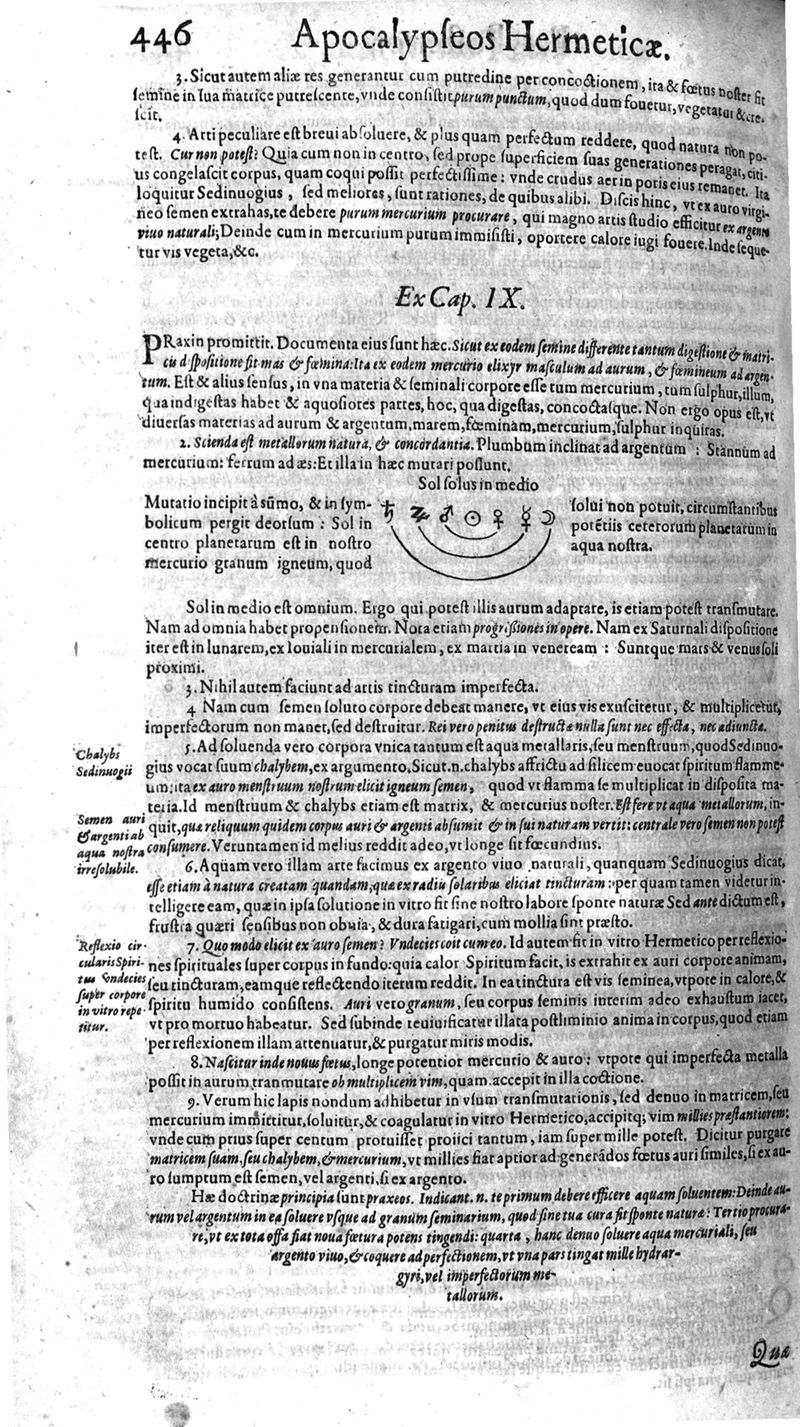 446 Apocalypſeos Hermeticæ.
3. Sicut autem aliæ res generantur cum putredine per concoctionem, ita & fœtus noſter fit
ſemine in ſua matrice putreſcente, vnde conſiſtit purum punctum, quod dum fouetur, vegetatur & cre-
ſcit.
4. Arti peculiare eſt breui abſoluere, & plus quam perfectum reddere, quod natura non po-
teſt. Cur non poteſt? Quia cum non in centro, ſed prope ſuperficiem ſuas generationes peragat, citi-
us congelaſcit corpus, quam coqui poſſit perfectiſſime: vnde crudus aer in poris eius remanet. Ita
loquitur Sedinuogius, ſed meliores, ſunt rationes, de quibus alibi. Diſcis hinc, vt ex auro virgi-
neo ſemen extrahas, te debere purum mercurium procurare, qui magno artis ſtudio efficitur ex argento
viuo naturali; Deinde cum in mercurium purum immiſiſti, oportere calore iugi fouere. Inde ſeque-
tur vis vegeta, &c.
Ex Cap. IX.
PRaxin promittit. Documenta eius ſunt hæc. Sicut ex eodem ſemine differente tantum digeſtione & matri-
cis diſpoſitione fit mas & fœmina: Ita ex eodem mercurio elixyr maſculum ad aurum, & fœmineum ad argen-
tum. Eſt & alius ſenſus, in vna materia & ſeminali corpore eſſe tum mercurium, tum ſulphur, illum,
qua indigeſtas habet & aquoſiores partes, hoc, qua digeſtas, concoctaſque. Non ergo opus eſt, vt
diuerſas materias ad aurum & argentum, marem, fœminam, mercurium, ſulphur inquiras.
2. Scienda eſt metallorum natura, & concordantia. Plumbum inclinat ad argentum : Stannum ad
mercurium: ferrum ad æs: Et illa in hæc mutari poſſunt.
Sol ſolus in medio
Mutatio incipit à sũmo, & in ſym-
bolicum pergit deorſum : Sol in
centro planetarum eſt in noſtro
mercurio granum igneum, quod
♄ ♃ ♂ ☉ ♀ ☿ ☽
ſolui non potuit, circumſtantibus
potẽtiis ceterorum planetarum in
aqua noſtra.
Sol in medio eſt omnium. Ergo qui poteſt illis aurum adaptare, is etiam poteſt tranſmutare.
Nam ad omnia habet propenſionem. Nota etiam progriſsiones in opere. Nam ex Saturnali diſpoſitione
iter eſt in lunarem, ex Iouiali in mercurialem, ex martia in veneream : Suntque mars & venus ſoli
proximi.
3. Nihil autem faciunt ad artis tincturam imperfecta.
4 Nam cum ſemen ſoluto corpore debeat manere, vt eius vis exuſcitetur, & multiplicetur,
imperfectorum non manet, ſed deſtruitur. Rei vero penitus deſtructæ nulla ſunt nec effecta, nec adiuncta.
Chalybs
Sedinuogii
5. Ad ſoluenda vero corpora vnica tantum eſt aqua metallaris, ſeu menſtruum, quod Sedinuo-
gius vocat ſuum chalybem, ex argumento, Sicut. n. chalybs affrictu ad ſilicem euocat ſpiritum flamme-
um: ita ex auro menſtruum noſtrum elicit igneum ſemen, quod vt flamma ſe multiplicat in diſpoſita ma-
teria. Id menſtruum & chalybs etiam eſt matrix, & mercurius noſter. Eſt fere vt aqua metallorum, in-
Semen auri
& argenti ab
aqua noſtra
irreſolubile.
quit, quæ reliquum quidem corpus auri & argenti abſumit & in ſui naturam vertit: centrale vero ſemen non poteſt
conſumere. Veruntamen id melius reddit adeo, vt longe ſit fœcundius.
6. Aquam vero illam arte facimus ex argento viuo naturali, quanquam Sedinuogius dicat,
eſſe etiam à natura creatam quandam, quæ ex radiis ſolaribus eliciat tincturam : per quam tamen videtur in-
telligere eam, quæ in ipſa ſolutione in vitro fit ſine noſtro labore ſponte naturæ Sed ante dictum eſt,
fruſtra quæri ſenſibus non obuia, & dura fatigari, cum mollia ſint præſto.
Reflexio cir-
cularis Spiri-
tus vndecies
ſuper corpore
in vitro repe-
titur.
7. Quo modo elicit ex auro ſemen? Vndecies coit cum eo. Id autem fit in vitro Hermetico per reflexio-
nes ſpirituales ſuper corpus in fundo: quia calor Spiritum facit, is extrahit ex auri corpore animam,
ſeu tincturam, eamque reflectendo iterum reddit. In ea tinctura eſt vis ſeminea, vtpote in calore, &
ſpiritu humido conſiſtens. Auri vero granum, ſeu corpus ſeminis interim adeo exhauſtum iacet,
vt pro mortuo habeatur. Sed ſubinde reuiuificatur illata poſtliminio anima in corpus, quod etiam
per reflexionem illam attenuatur, & purgatur miris modis.
8. Naſcitur inde nouus fœtus, longe potentior mercurio & auro: vtpote qui imperfecta metalla
poſſit in aurum tranmutare ob multiplicem vim, quam accepit in illa coctione.
9. Verum hic lapis nondum adhibetur in vſum tranſmutationis, ſed denuo in matricem, ſeu
mercurium immittitur, ſoluitur, & coagulatur in vitro Hermetico, accipitq; vim millies præſtantiorem:
vnde cum prius ſuper centum protuiſſet proiici tantum, iam ſuper mille poteſt. Dicitur purgare
matricem ſuam, ſeu chalybem, & mercurium, vt millies fiat aptior ad generãdos fœtus auri ſimiles, ſi ex au-
ro ſumptum eſt ſemen, vel argenti, ſi ex argento.
Hæ doctrinæ principia ſunt praxeos. Indicant. n. te primum debere efficere aquam ſoluentem: Deinde au-
rum vel argentum in ea ſoluere vſque ad granum ſeminarium, quod ſine tua cura fit ſponte naturæ: Tertio procura-
re, vt ex tota offa fiat noua fœtura potens tingendi: quarta, hanc denuo ſoluere aqua mercuriali, ſeu
argento viuo, & coquere ad perfectionem, vt vna pars tingat mille hydrar-
gyri, vel imperfectorum me-
tallorum.
Qua